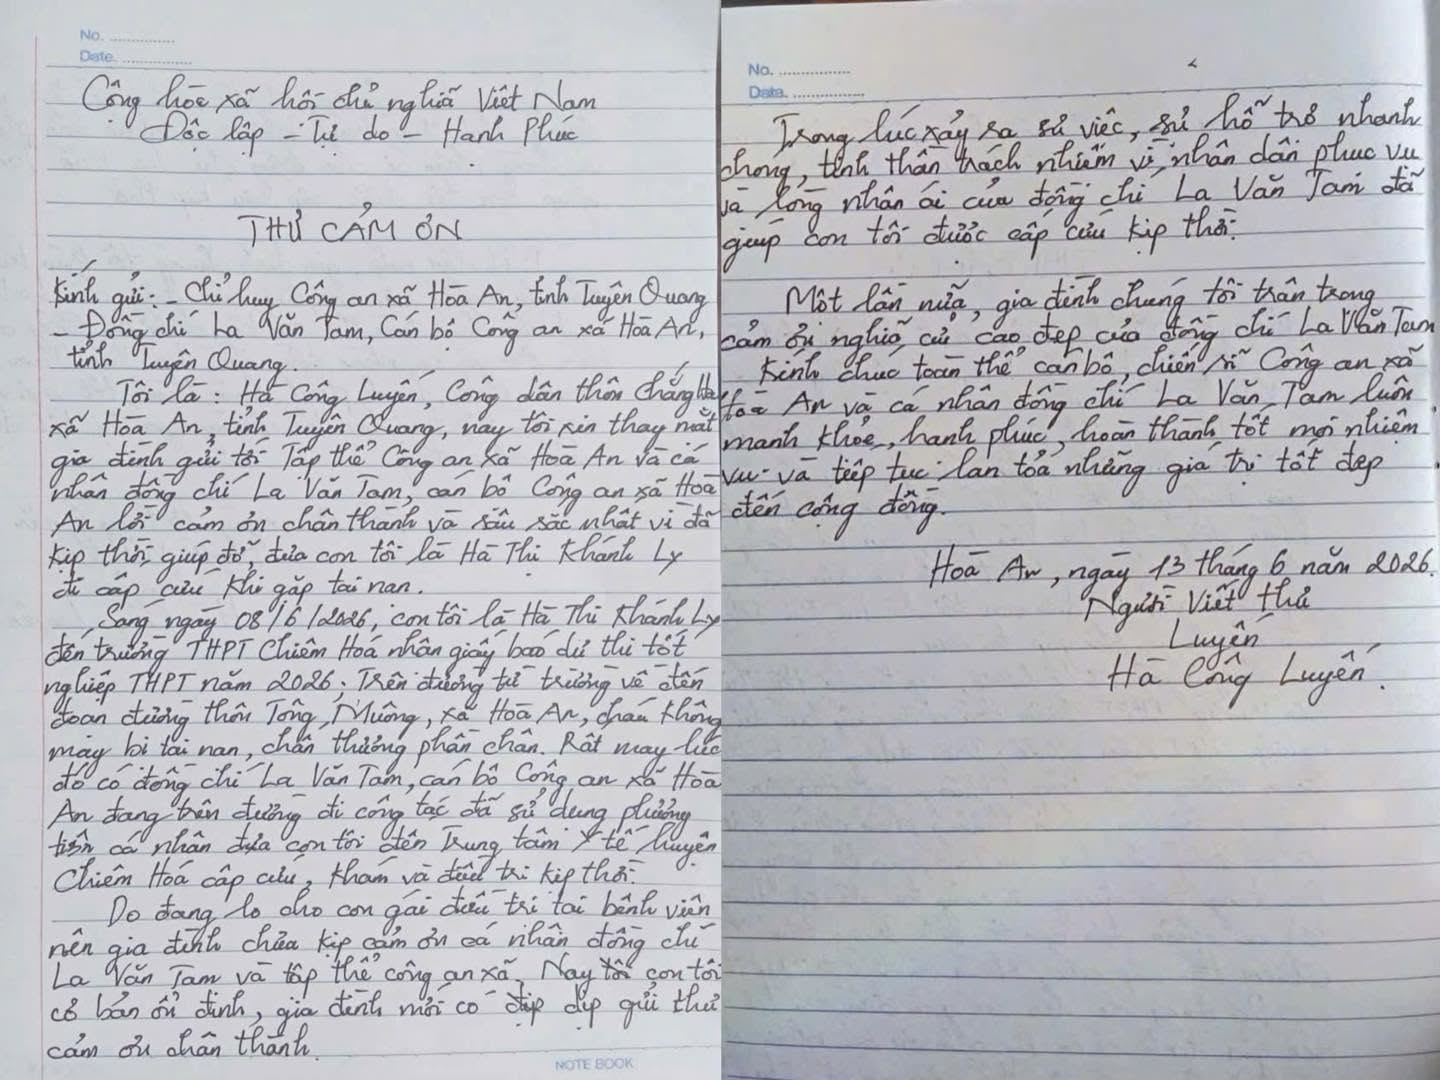 No. ...............
Date. ...............
Cộng hòa xã hội chủ nghĩa Việt Nam
Độc lập - Tự do - Hạnh Phúc
THƯ CẢM ƠN
Kính gửi: - Chỉ huy Công an xã Hoà An, tỉnh Tuyên Quang
- Đồng chí La Văn Tam, Cán bộ Công an xã Hoà An,
tỉnh Tuyên Quang.
Tôi là: Hà Công Luyến, Công dân thôn Chắng Hạ
xã Hoà An, tỉnh Tuyên Quang, nay tôi xin thay mặt
gia đình gửi tới Tập thể Công an xã Hoà An và cá
nhân đồng chí La Văn Tam, cán bộ Công an xã Hoà
An lời cảm ơn chân thành và sâu sắc nhất vì đã
kịp thời, giúp đỡ, đưa con tôi là Hà Thị Khánh Ly
đi cấp cứu khi gặp tai nạn.
Sáng ngày 08/6/2026, con tôi là Hà Thị Khánh Ly
đến trường THPT Chiêm Hoá nhận giấy báo dự thi tốt
nghiệp THPT năm 2026; Trên đường từ trường về đến
đoạn đường thôn Tông Muông, xã Hoà An, cháu không
may bị tai nạn, chấn thương phần chân. Rất may lúc
đó có đồng chí La Văn Tam, cán bộ Công an xã Hoà
An đang trên đường đi công tác đã sử dụng phương
tiện cá nhân đưa con tôi đến Trung tâm Y tế huyện
Chiêm Hoá cấp cứu, khám và điều trị kịp thời.
Do đang lo cho con gái điều trị tại bệnh viện
nên gia đình chưa kịp cảm ơn cá nhân đồng chí
La Văn Tam và tập thể công an xã. Nay tôi con tôi
cơ bản ổn định, gia đình mới có dịp dịp gửi thư
cảm ơn chân thành.
NOTE BOOK
No. ...............
Date. ...............
Trong lúc xảy ra sự việc, sự hỗ trợ nhanh
chóng, tinh thần trách nhiệm vì nhân dân phục vụ
và lòng nhân ái của đồng chí La Văn Tam đã
giúp con tôi được cấp cứu kịp thời.
Một lần nữa, gia đình chúng tôi trân trọng
cảm ơn nghĩa cử cao đẹp của đồng chí La Văn Tam
Kính chúc toàn thể cán bộ, chiến sĩ Công an xã
Hoà An và cá nhân đồng chí La Văn Tam luôn
mạnh khoẻ, hạnh phúc, hoàn thành tốt mọi nhiệm
vụ và tiếp tục lan toả những giá trị tốt đẹp
đến cộng đồng.
Hoà An, ngày 13 tháng 6 năm 2026.
Người Viết thư
Luyến
Hà Công Luyến.